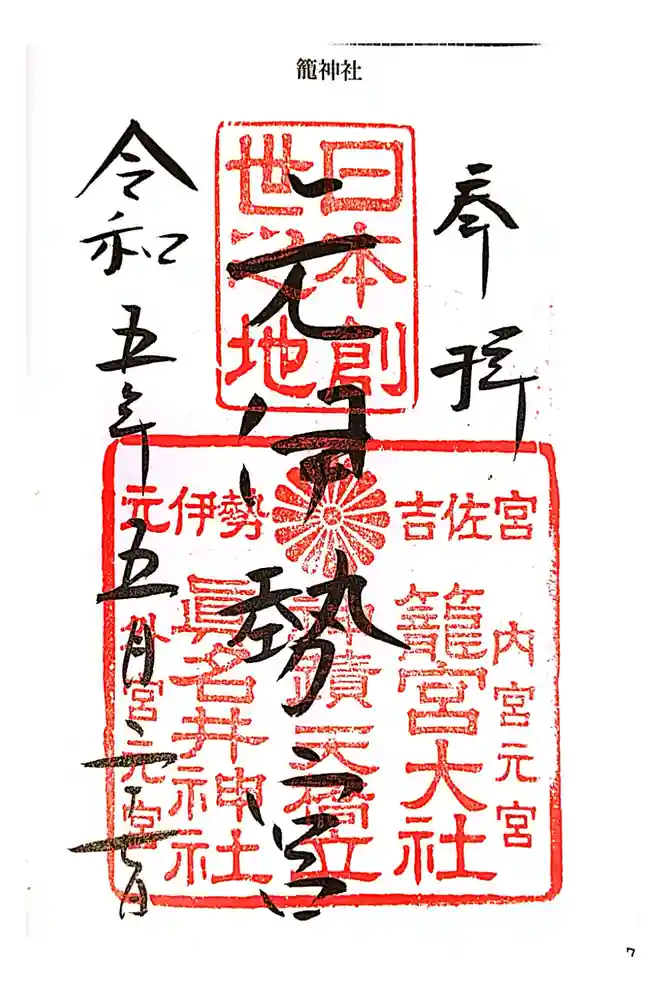 籠神社
奉拝
日本創
世之地
元伊勢宮
吉佐宮
元伊勢
内宮元宮
籠宮大社
神蹟天橋立
眞名井神社
外宮元宮
令和五年五月二十七日
7